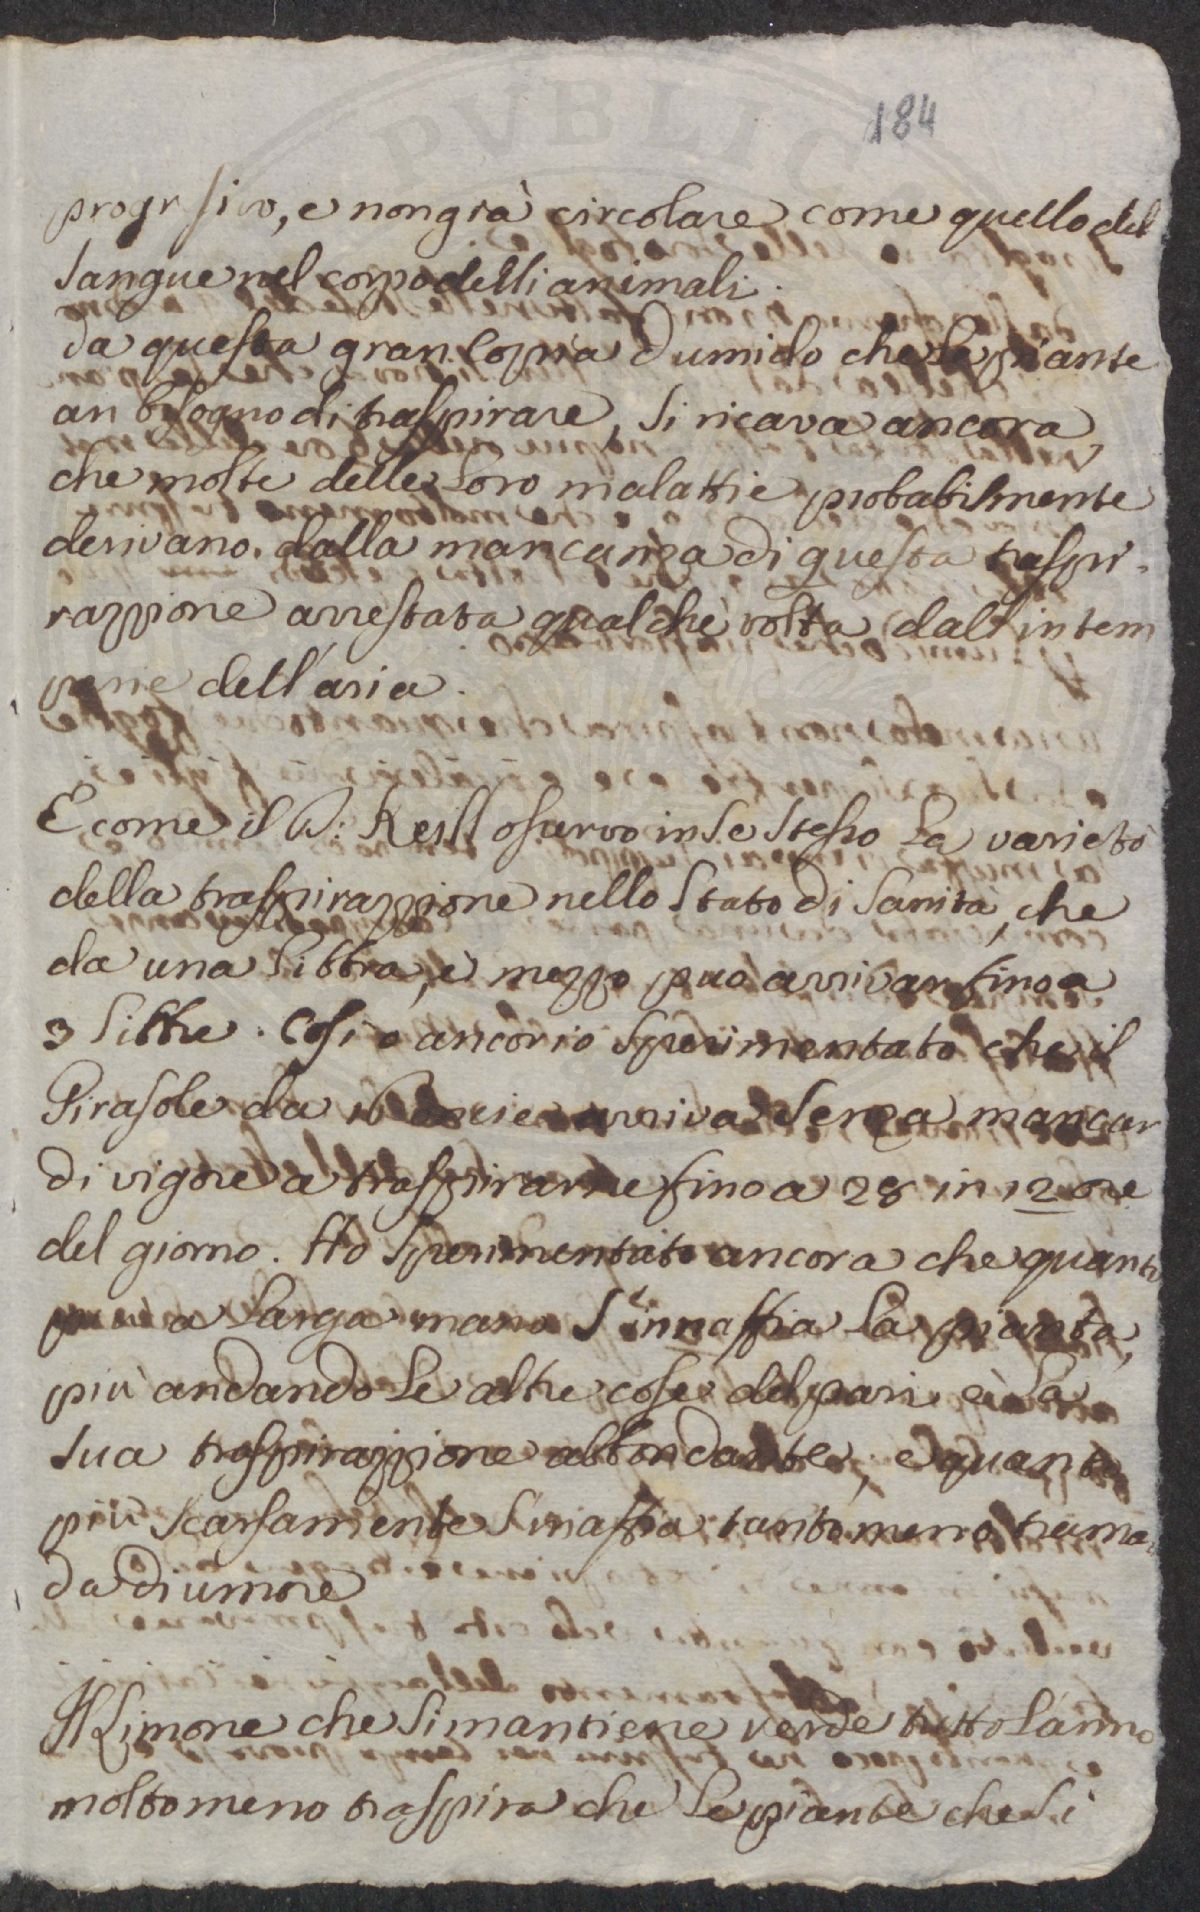 184
progrsivo, e non già circolare come quello del
sangue nel corpo delli animali.
da questa gran Copia d umido che le piante
an bisogno di traspirare, si ricava ancora,
che molte delle loro malattie probabilmente
derivano dalla mancanza di questa traspi-
razzione arrestata qualche volta dall'intem
perie dell'aria.
E come il Keill osservo in se stesso la varietà
della traspirazzione nello stato di sanità, che
da una libbra, e mezzo puo arrivar fino a
3 libbre. Cosi o ancor io sperimentato che il
Girasole da 16 oncie arriva senza mancar
di vigore a traspirarne fino a 28 in 12 ore
del giorno. Ho sperimentato ancora che quanto
più a larga mano s'innaffia la pianta,
più andando le altre cose del pari è la
sua traspirazzione abbondante, e quanto
più scarsamente s'inaffia tanto meno trama
da di umore
Il Limone che si mantiene verde tutto l'anno
molto meno traspira che le piante che si